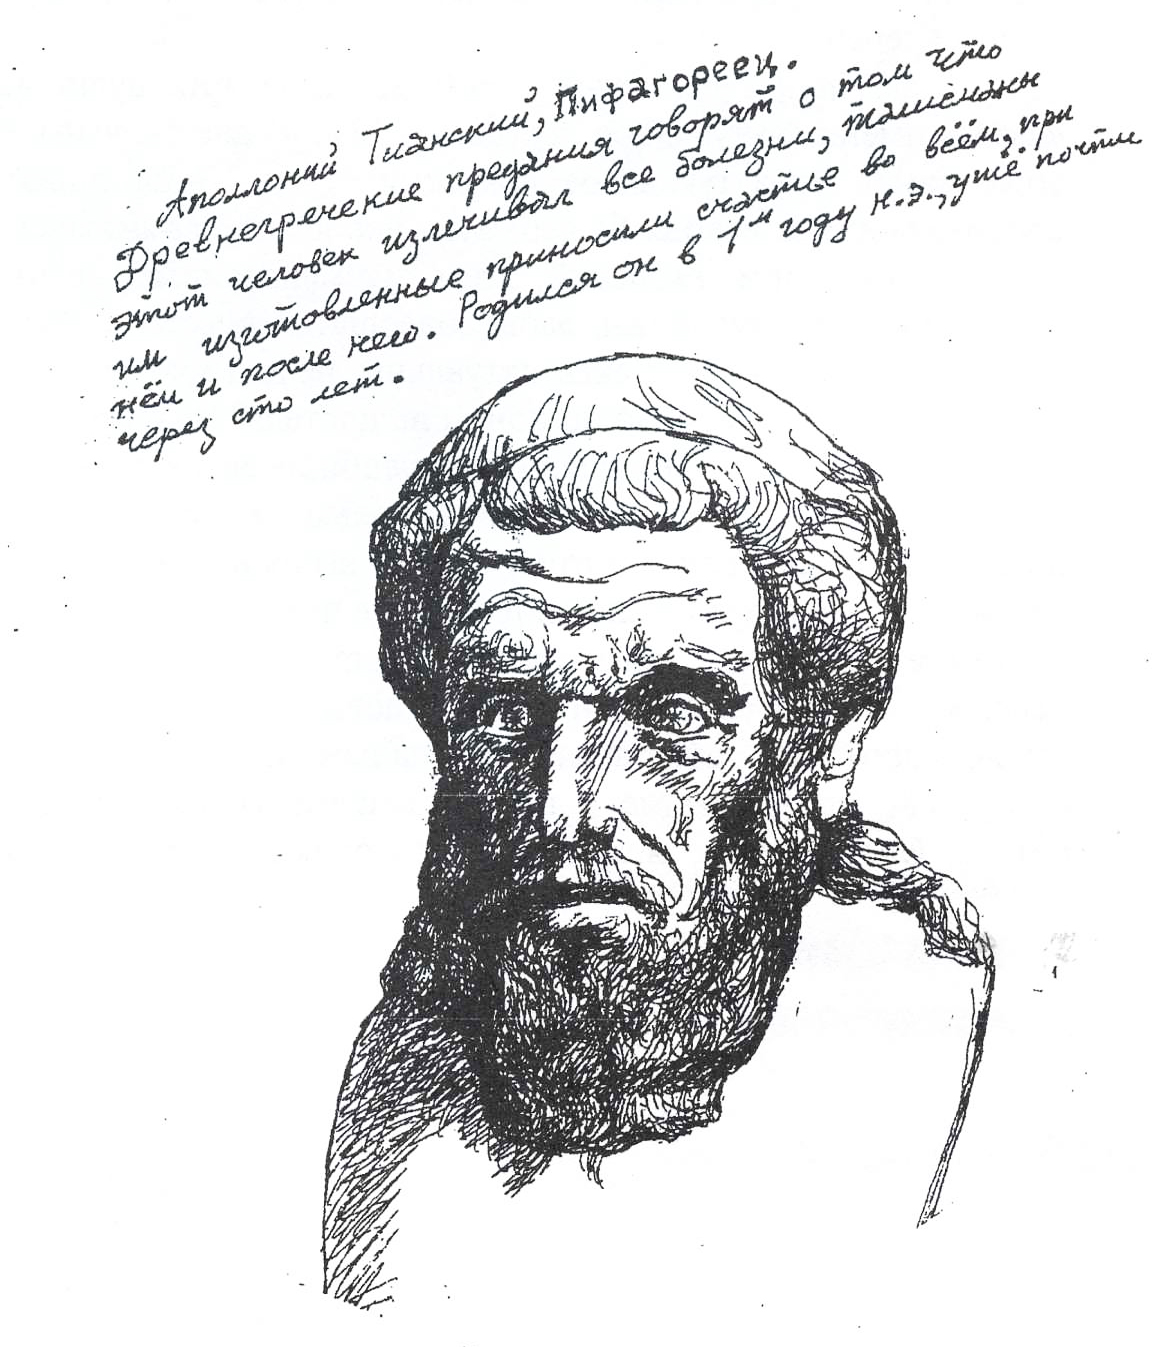 Аполлоний Тианский, Пифагореец.
Древнегречекие предания говорят о том что
этот человек излечивал все болезни, талисманы
им изготовленные приносили счастье во всём, при
нём и после него. Родился он в 1м году н.э., уже почти
через сто лет.